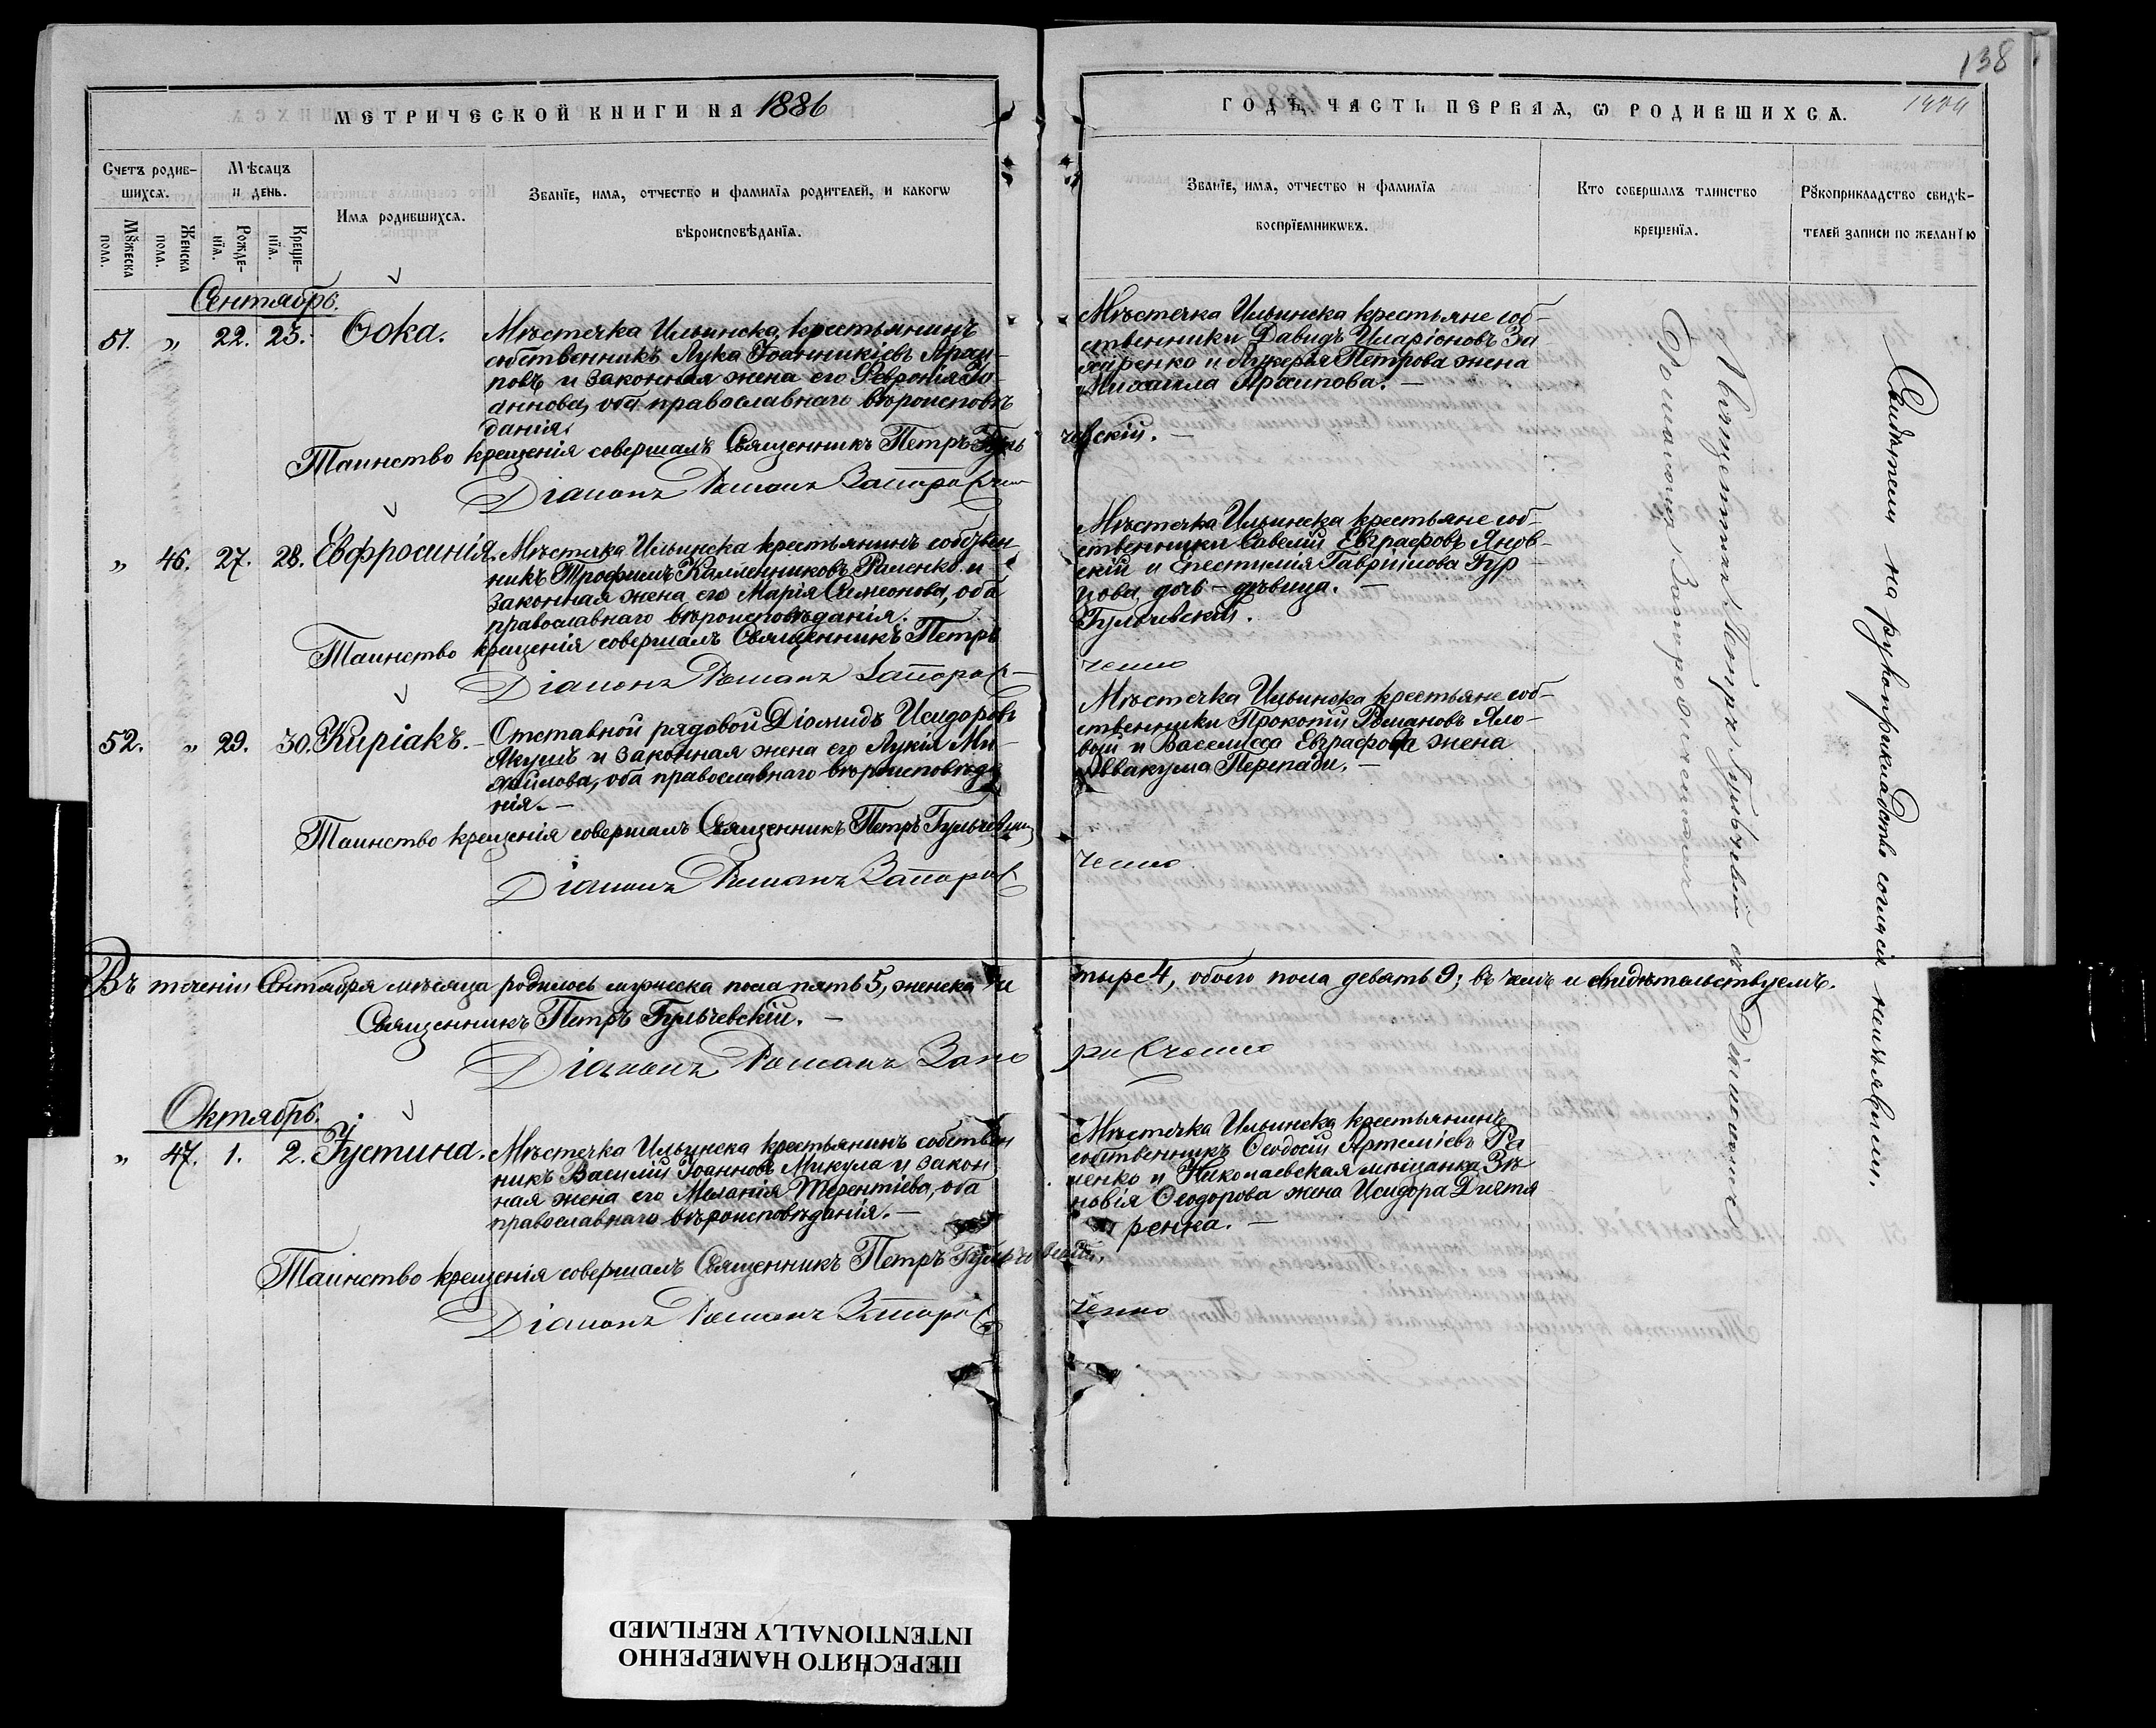 138
МЕТРИЧЕСКОЙ КНИГИ НА 1886
ГОДЪ, ЧАСТЬ ПЕРВАЯ, Ѡ РОДИВШИХСѦ.
Счетъ родив-
шихсѧ.
Мѣсѧцъ
и день.
Имѧ родившихсѧ.
Званїе, имѧ, отчество и фамилїѧ родителей, и какогѡ
вѣроисповѣданїѧ.
Мꙋжеска
пола.
Женска
пола.
Рожде-
нїѧ.
Креще-
нїѧ.
Званїе, имѧ, отчество и фамилїѧ
воспрїемникѡвъ.
Кто совершалъ таинство
крещенїѧ.
Рꙋкоприкладство свидѣ-
телей записи по желанїю
Сентябрь.
51. „ 22. 23. Ѳока.
Мѣстечка Ильинска крестьянинъ
собственникъ Лука Іоанникіевъ Архи-
повъ и законная жена его Февронія Іо-
аннова, оба православнаго вѣроисповѣ
данія.
Мѣстечка Ильинска крестьяне соб-
ственники Давидъ Иларіоновъ За
харенко и Лукерія Петрова жена
Михаила Архипова. —
Таинство крещенія совершалъ Священникъ Петръ Гуль
чевскій. —
Діаконъ Романъ Запоров
„ 46. 27. 28. Евфросинія.
Мѣстечка Ильинска крестьянинъ собствен-
никъ Трофимъ Каллениковъ Раченко и
законная жена его Марія Симеонова, оба
православнаго вѣроисповѣданія.
Мѣстечка Ильинска крестьяне соб-
ственники Савелій Евграфовъ Янов-
скій и Епестимія Гавріилова Гур-
нова дочь - дѣвица. —
Таинство крещенія совершалъ Священникъ Петръ
Гульчевскій.
Діаконъ Романъ Запоров-
ченко
52. „ 29. 30. Киріакъ.
Отставной рядовой Діомидъ Исидоровъ
Якушъ и законная жена его Лукія Ми-
хайлова, оба православнаго вѣроисповѣда
нія. —
Мѣстечка Ильинска крестьяне соб-
ственники Прокопій Романовъ Яло-
вой и Васелисса Евграфова жена
Аввакума Перепади. —
Таинство крещенія совершалъ Священникъ Петръ Гульчевскій
Діаконъ Романъ Запоров
ченко
Въ теченіи Сентября мѣсяца родилось мужеска пола пять 5, женска че
тыре 4, обоего пола девять 9; въ чемъ и свидѣтельствуемъ.
Священникъ Петръ Гульчевскій. —
Діаконъ Романъ Запо
ровченко
Октябрь.
„ 47. 1. 2. Іустина.
Мѣстечка Ильинска крестьянинъ собствен
никъ Василій Іоанновъ Микула и закон
ная жена его Меланія Терентіева, оба
православнаго вѣроисповѣданія. —
Мѣстечка Ильинска крестьянинъ
собственникъ Ѳеодосій Артеміевъ Ра
ченко и Николаевская мѣщанка Зи
новія Ѳеодорова жена Исидора Дихтя
ренка. —
Таинство крещенія совершалъ Священникъ Петръ Гульчевскій.
Діаконъ Романъ Запоров
ченко
Священникъ Петръ Гульчевскій съ Діакономъ
Романомъ Запоровченкомъ
Свидѣтели на рукоприкладство согласія неизъявили.
ПЕРЕСНЯТО НАМЕРЕННО
INTENTIONALLY REFILMED